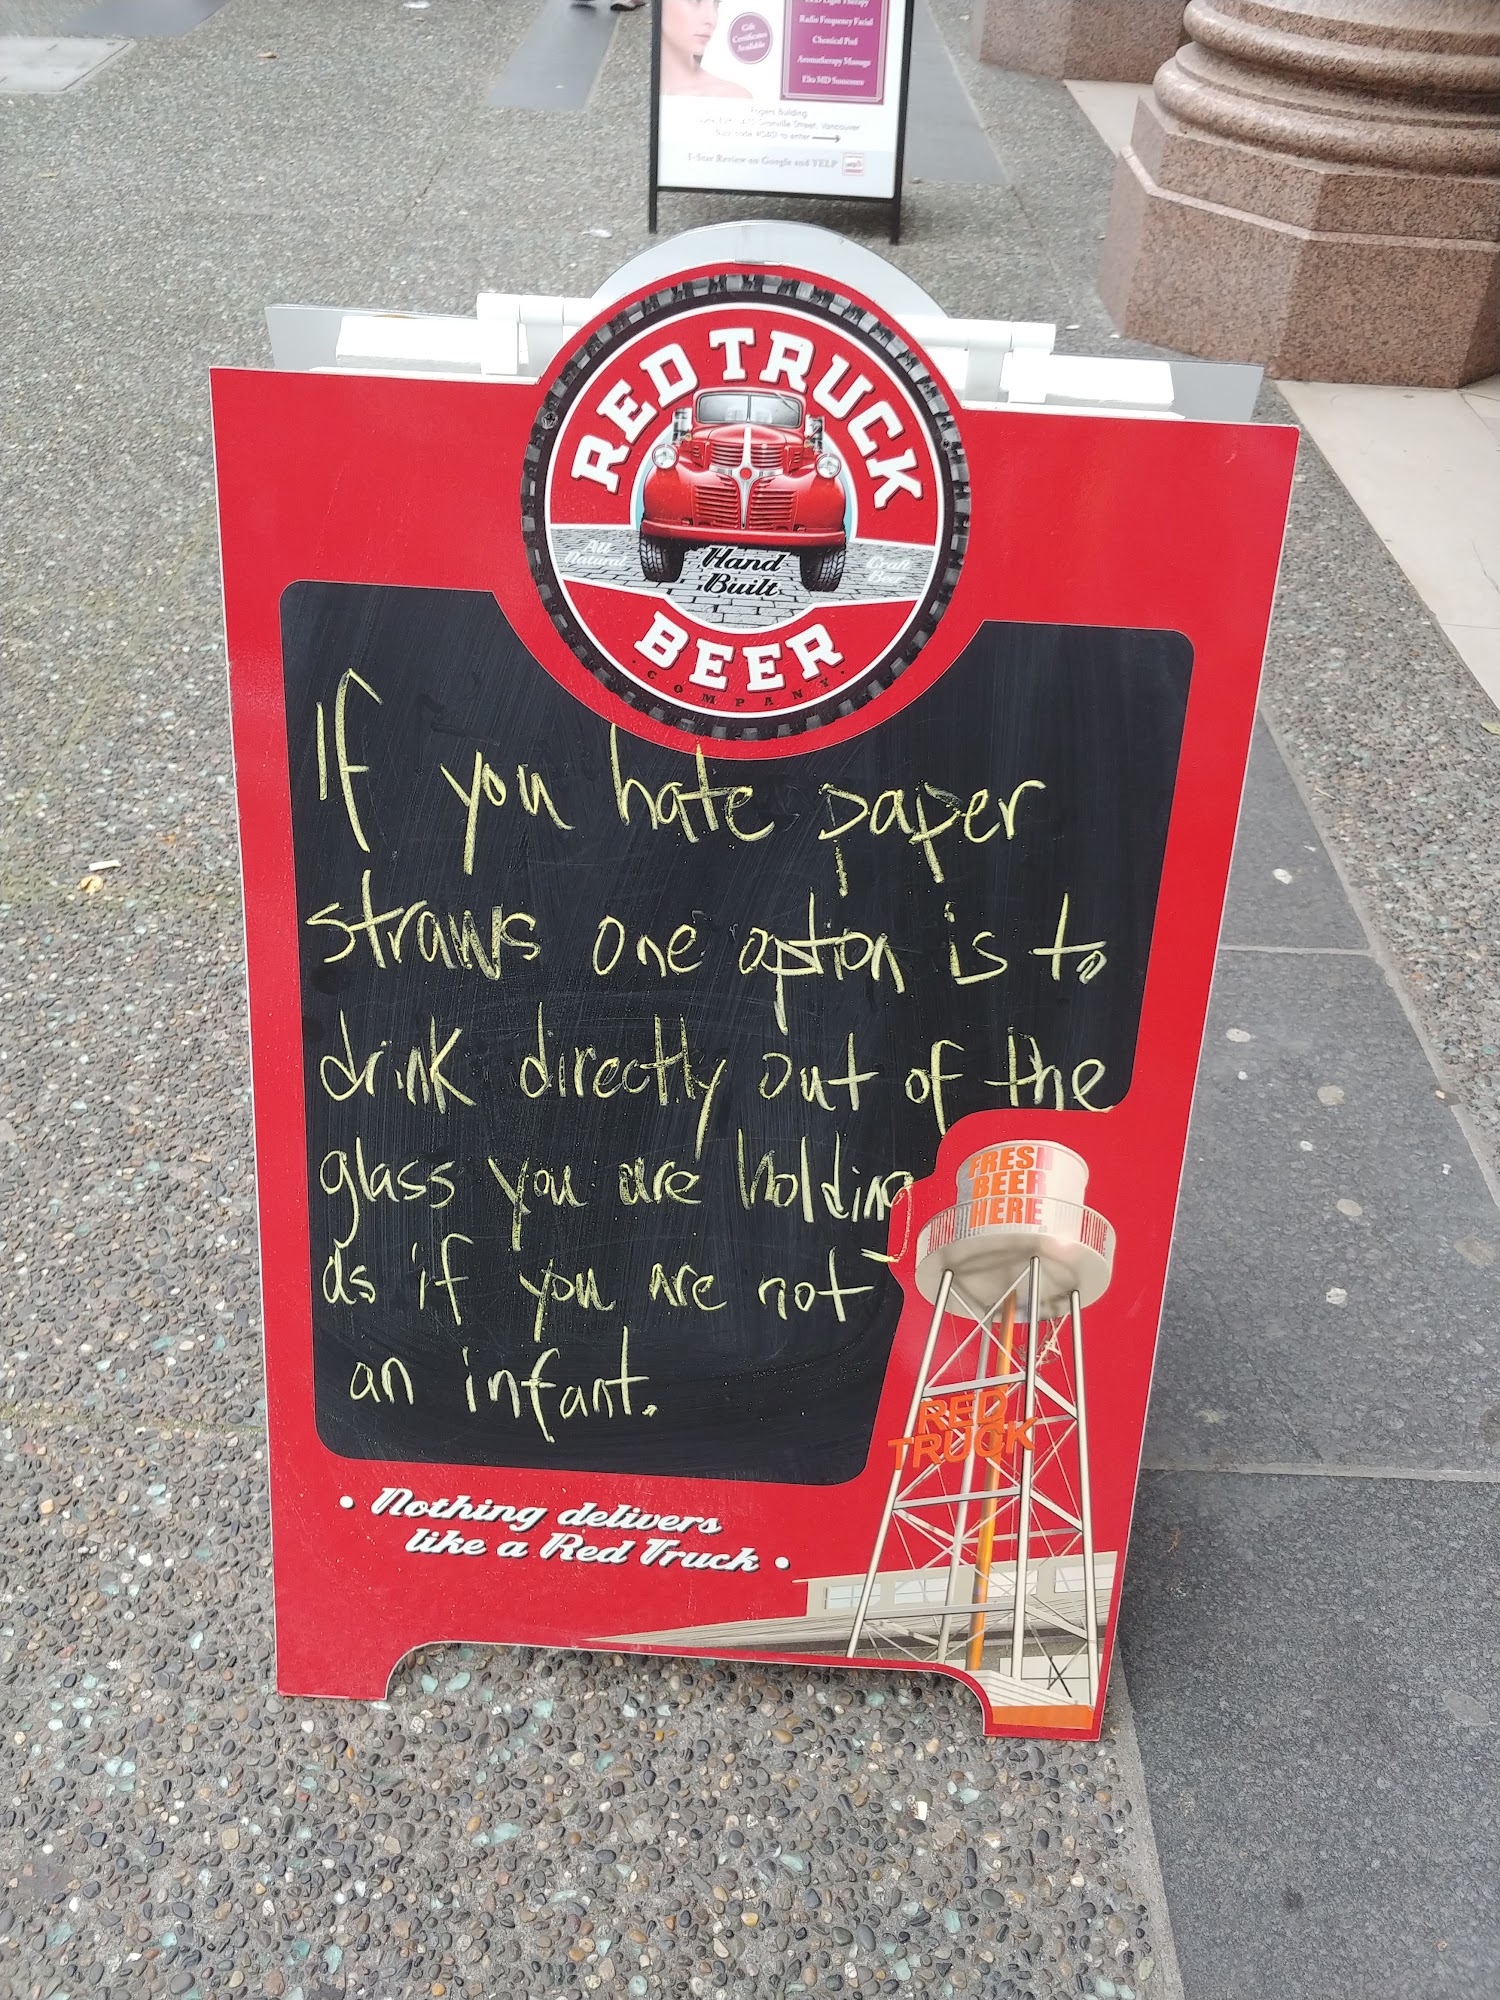 Gift
Certificates
Available
Radio Frequency Facial
Chemical Peel
Aromatherapy Massage
Elta MD Sunscreen
Rogers Building
Granville Street, Vancouver
to enter
5-Star Review on Google and YELP
RED TRUCK
All
Natural
Hand
Built
Craft
Beer
BEER
COMPANY
If you hate paper
straws one option is to
drink directly out of the
glass you are holding
as if you are not
an infant.
FRESH
BEER
HERE
RED
TRUCK
• Nothing delivers
like a Red Truck •